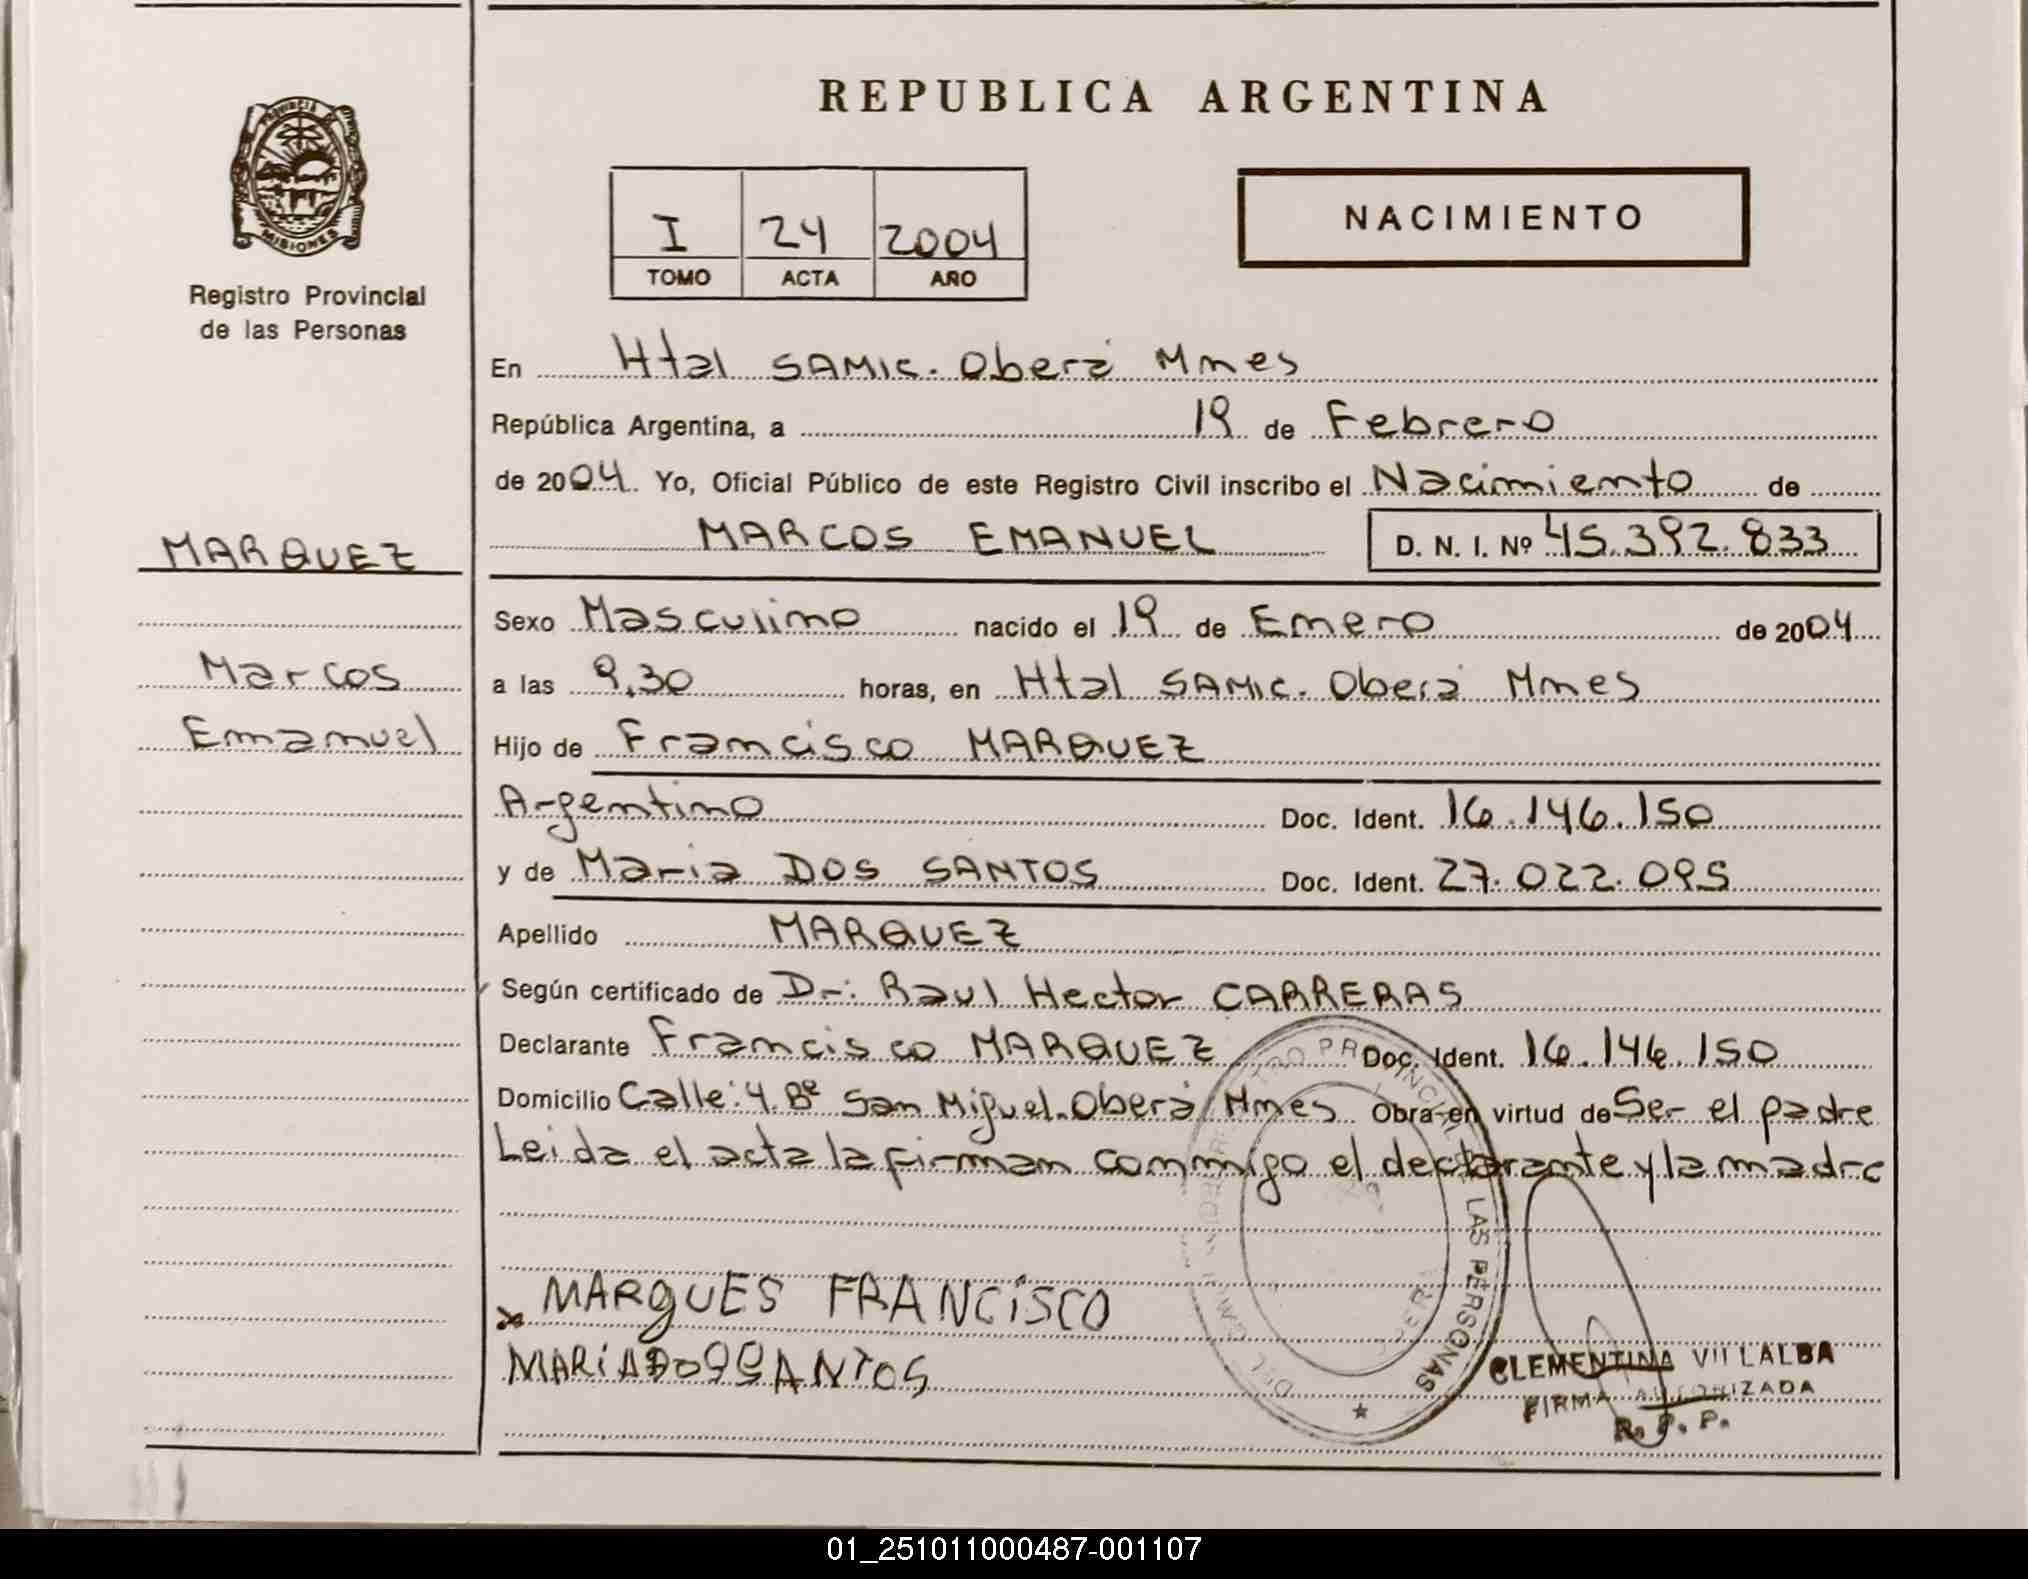 REPUBLICA ARGENTINA
PROVINCIA DE
MISIONES
Registro Provincial
de las Personas
I 24 2004
TOMO ACTA AÑO
NACIMIENTO
En Htal SAMIC. Oberá Mnes
República Argentina, a 19 de Febrero
de 2004. Yo, Oficial Público de este Registro Civil inscribo el Nacimiento de
MARCOS EMANUEL D. N. I. Nº 45.392.833
MARQUEZ
Marcos
Emanuel
Sexo Masculino nacido el 19 de Enero de 2004
a las 9,30 horas, en Htal SAMIC. Oberá Mnes
Hijo de Francisco MARQUEZ
Argentino Doc. Ident. 16.146.150
y de Maria DOS SANTOS Doc. Ident. 27.022.095
Apellido MARQUEZ
Según certificado de Dr: Raul Hector CARRERAS
Declarante Francisco MARQUEZ Doc. Ident. 16.146.150
Domicilio Calle: 4. Bº San Miguel. Oberá Mnes Obra en virtud de Ser el padre
Leida el acta la firman conmigo el declarante y la madre
MARQUES FRANCISCO
MARIA DOS SANTOS
PROVINCIAL LAS PERSONAS
CLEMENTINA VILLALBA
FIRMA AUTORIZADA
R. P. P.
01_251011000487-001107